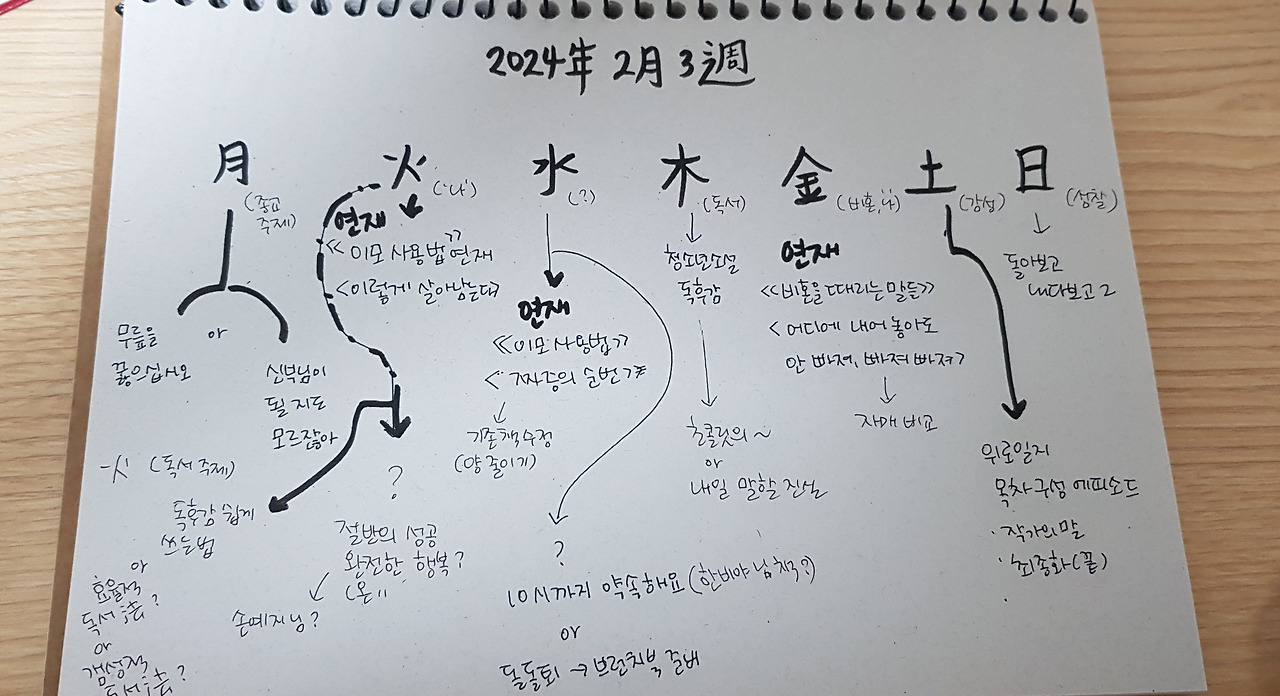 2024年 2月 3週
月
(종교
주제)
무릎을
꿇으십시오
or
신부님이
될 지도
모르잖아
火
('나')
연재
《이모 사용법》 연재
<이렇게 살아남는다>
火 (독서 주제)
독후감 쉽게
쓰는법
or
효율적
독서法?
or
감성적
독서法?
?
절반의 성공
완전한 행복?
손예지님?
水
(?)
연재
《이모 사용법》
<짜증의 순번
기존책 수정
(양 줄이기)
?
10시까지 약속해요 (한비야 님 책?)
or
돌돌회 → 브런치북 준비
木
(독서)
청소년소설
독후감
초콜릿의 ~
or
내일 말할 진실
金
(비혼,나)
연재
《비혼을 때리는 말들》
<어디에 내어 놓아도
안 빠져, 빠져 빠져?
자매 비교
土
(감성)
위로일지
목차 구성 에피소드
· 작가의 말
· 최종화 (끝)
日
(성찰)
돌아보고
내다보고 2